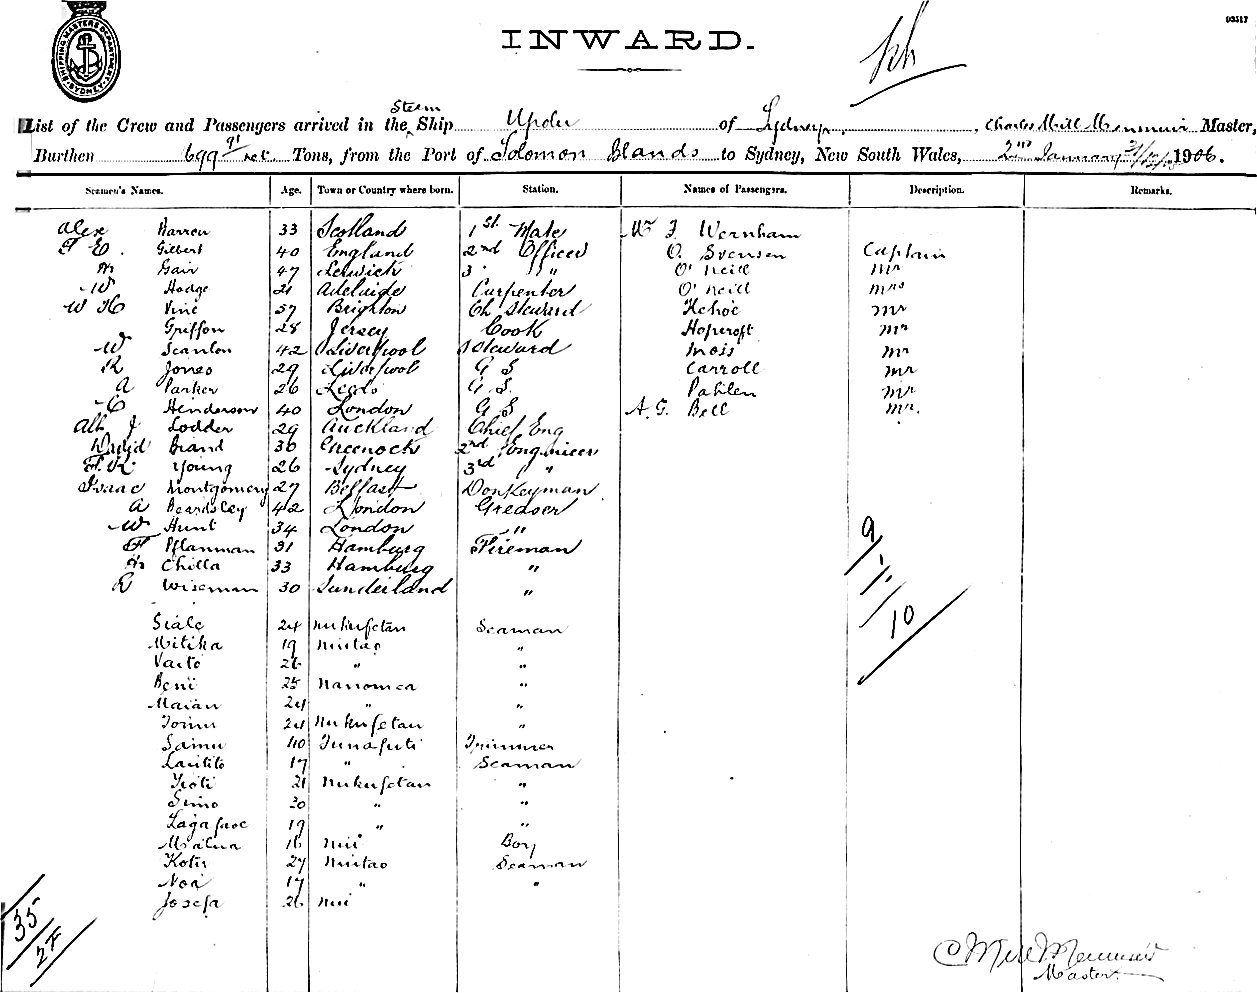 03517
SHIPPING MASTERS DEPARTMENT SYDNEY
INWARD.
List of the Crew and Passengers arrived in the Steam Ship Upolu of Sydney, Charles Mill Menmuir Master,
Burthen 699 91 net Tons, from the Port of Solomon Islands to Sydney, New South Wales, 2nd January 1906.
Seamen's Names. Age. Town or Country where born. Station. Names of Passengers. Description. Remarks.
Alex Warren 33 Scotland 1st Mate Mr J Wernham
F E. Gilbert 40 England 2nd Officer O. Svensen Captain
Gair 47 Lerwick 3 " " O'Neill Mr
W Hodge 21 Adelaide Carpenter O'Neill Mrs
W H Vine 37 Brighton Ch Steward Kehoe Mr
Griffon 28 Jersey Cook Hopcroft Mr
W Scanlon 42 Liverpool Steward Mr
R Jones 29 Liverpool G S Carroll Mr
A Parker 26 Leeds G.S. Pahlen Mr
C Henderson 40 London G S A.G. Bell Mr.
Alb J Lodder 29 Auckland Chief Eng
David Brand 36 Greenock 2nd Engineer
F. R Young 26 Sydney 3rd "
Isaac Montgomery 27 Belfast Donkeyman
A Beardsley 42 London Greaser
W Hunt 34 London "
F Pflanman 31 Hamburg Fireman
H Chilla 33 Hamburg "
R Wiseman 30 Sunderland "
Siale 24 Nukufetau Seaman
Mitika 19 Niutao "
Vaito 26 " "
Beni 25 Nanomea "
Maian 24 " "
24 Nukufetau "
Samu 40 Funafuti Trimmer
Lautito 17 " Seaman
21 Nukufetau "
Simo 20 " "
Lagafaoe 19 " "
16 Nui Boy
Kotu 27 Niutao Seaman
Noa 17 " "
Josefa 26 Nui
9/1/10
35/27
C Mill Menmuir
Master